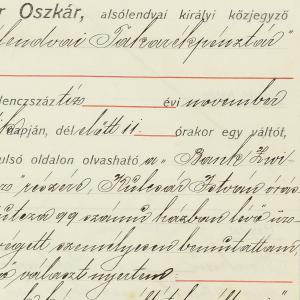 r Oszkár, alsólendvai királyi közjegyző
lendvai Takarékpénztár"
lencszáz tíz évi november
napján, dél előtt 11. órakor egy váltót,
ulsó oldalon olvasható a „Bank
részére, Kulcsár István órás
utcza 99 számú házban lévő üz-
végett, személyesen bemutattam,
választ nyertem: